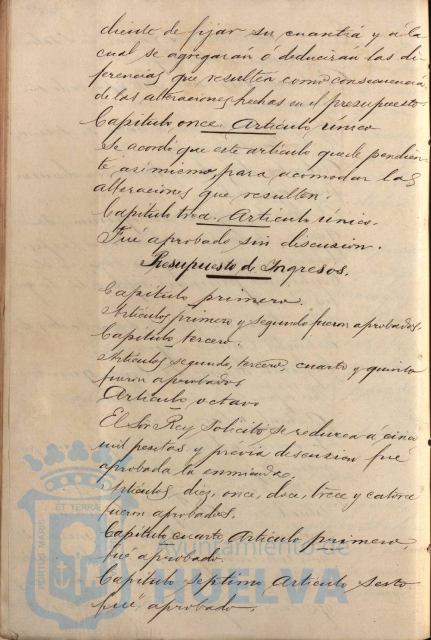 diente de fijar su cuantía y á la
cual se agregarán ó deducirán las di-
ferencias que resulten como consecuencia
de las alteraciones hechas en el presupuesto.
Capítulo once. Artículo único
Se acordó que este artículo quede pendien-
te asimismo para acomodar las
alteraciones que resulten.
Capítulo trece. Artículo único.
Fué aprobado sin discusion.
Presupuesto de Ingresos.
Capítulo primero.
Artículos primero y segundo fueron aprobados.
Capítulo tercero.
Artículos segundo, tercero, cuarto y quinto
fueron aprobados
Artículo octavo
El Sr. Rey solicitó se reduzca á cinco
mil pesetas y prévia discusion fué
aprobada la enmienda.
Artículos diez, once, doce, trece y catorce
fueron aprobados.
Capítulo cuarto, Artículo primero,
fué aprobado.
Capítulo septimo Artículo sesto
fué aprobado.
PORTUS MARIS ET TERRAE
Ayuntamiento de
HUELVA